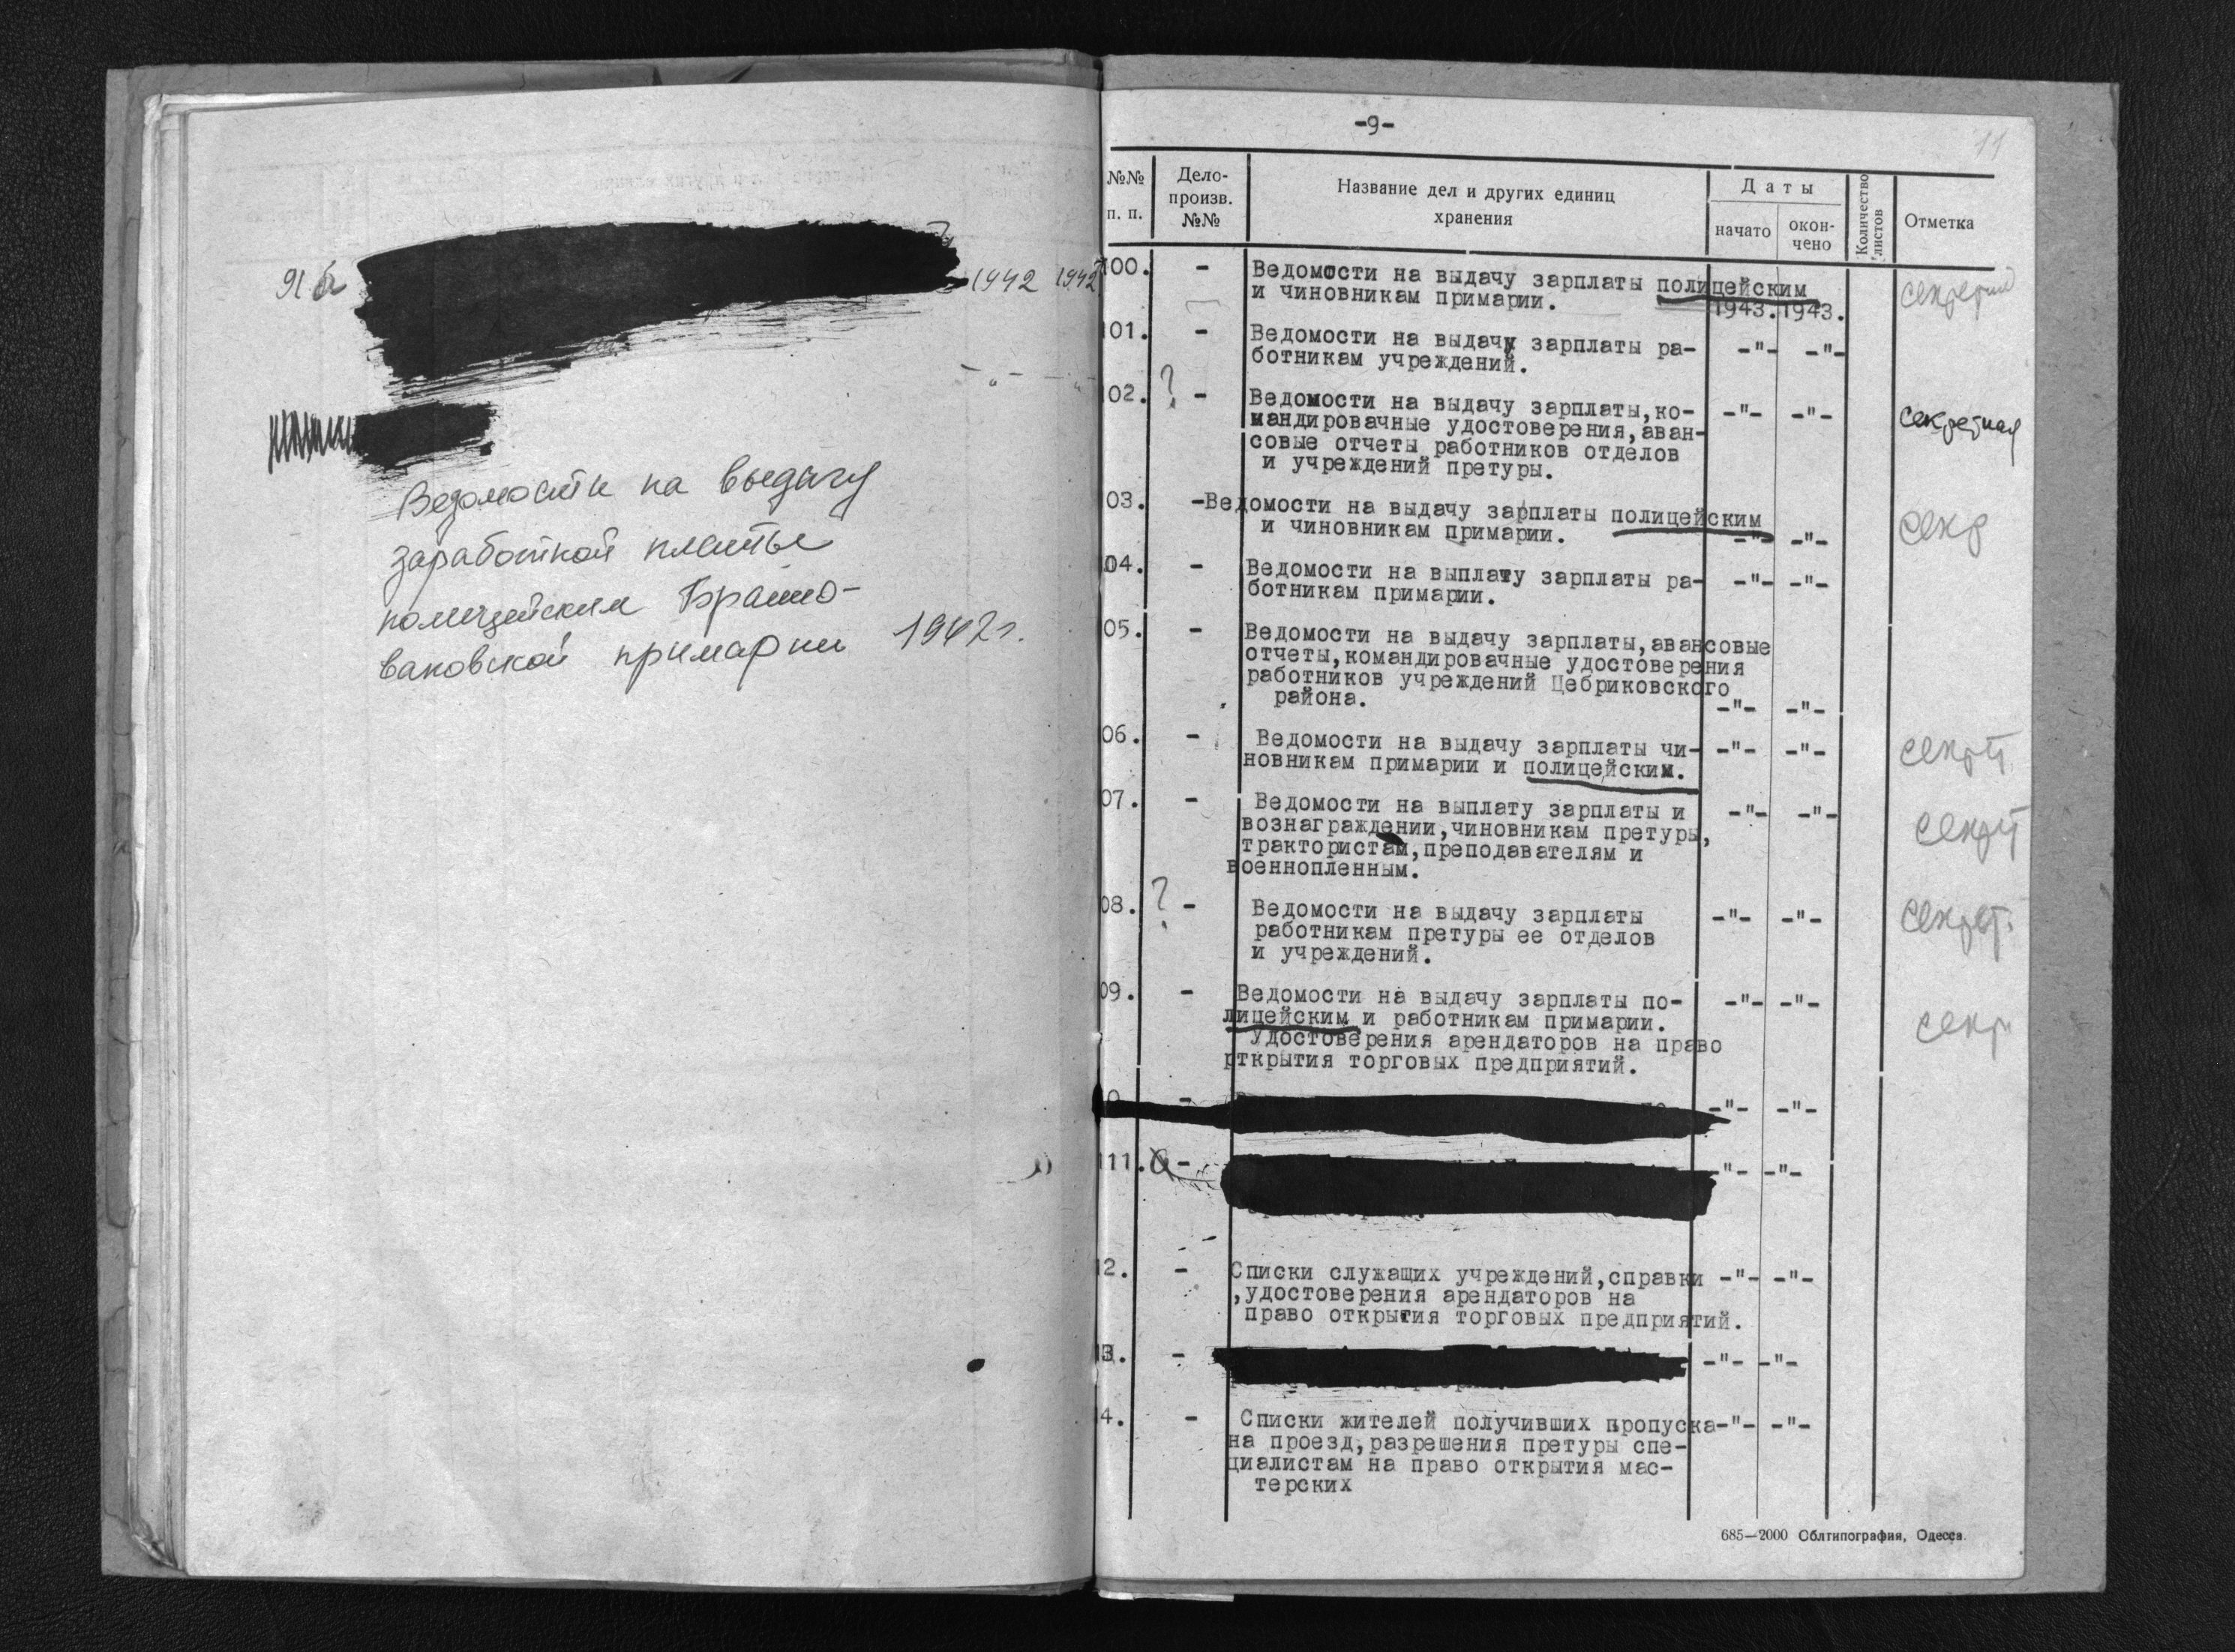 91а 1942 1942
Ведомости на выдачу
заработной платы
полицейским Брано-
ваковской примарии 1942г.
-9-
11
№№ п. п.
Дело-
произв.
№№
Название дел и других единиц
хранения
Даты
начато
окон-
чено
Количество
листов
Отметка
100. - Ведомости на выдачу зарплаты полицейским секретно
и чиновникам примарии. 1943. 1943.
101. - Ведомости на выдачу зарплаты ра- -"- -"-
ботникам учреждений.
102. ? - Ведомости на выдачу зарплаты,ко- -"- -"- секретная
мандировачные удостоверения,аван-
совые отчеты работников отделов
и учреждений претуры.
03. -Ведомости на выдачу зарплаты полицейским секр
и чиновникам примарии. -"- -"-
04. - Ведомости на выплату зарплаты ра- -"- -"-
ботникам примарии.
05. - Ведомости на выдачу зарплаты,авансовые
отчеты,командировачные удостоверения
работников учреждений Цебриковского
района. -"- -"-
06. - Ведомости на выдачу зарплаты чи- -"- -"- секрт
новникам примарии и полицейским.
07. - Ведомости на выплату зарплаты и -"- -"- секрт
вознаграждении,чиновникам претуры,
трактористам,преподавателям и
военнопленным.
08. ? - Ведомости на выдачу зарплаты -"- -"- секрет.
работникам претуры ее отделов
и учреждений.
09. - Ведомости на выдачу зарплаты по- -"- -"- секр.
лицейским и работникам примарии.
Удостоверения арендаторов на право
рткрытия торговых предприятий.
0 - -"- -"-
111. - -"- -"-
2. - Списки служащих учреждений,справки -"- -"-
,удостоверения арендаторов на
право открытия торговых предприятий.
3. - -"- -"-
4. - Списки жителей получивших пропуска -"- -"-
на проезд,разрешения претуры спе-
циалистам на право открытия мас-
терских
685—2000 Облтипография, Одесса.